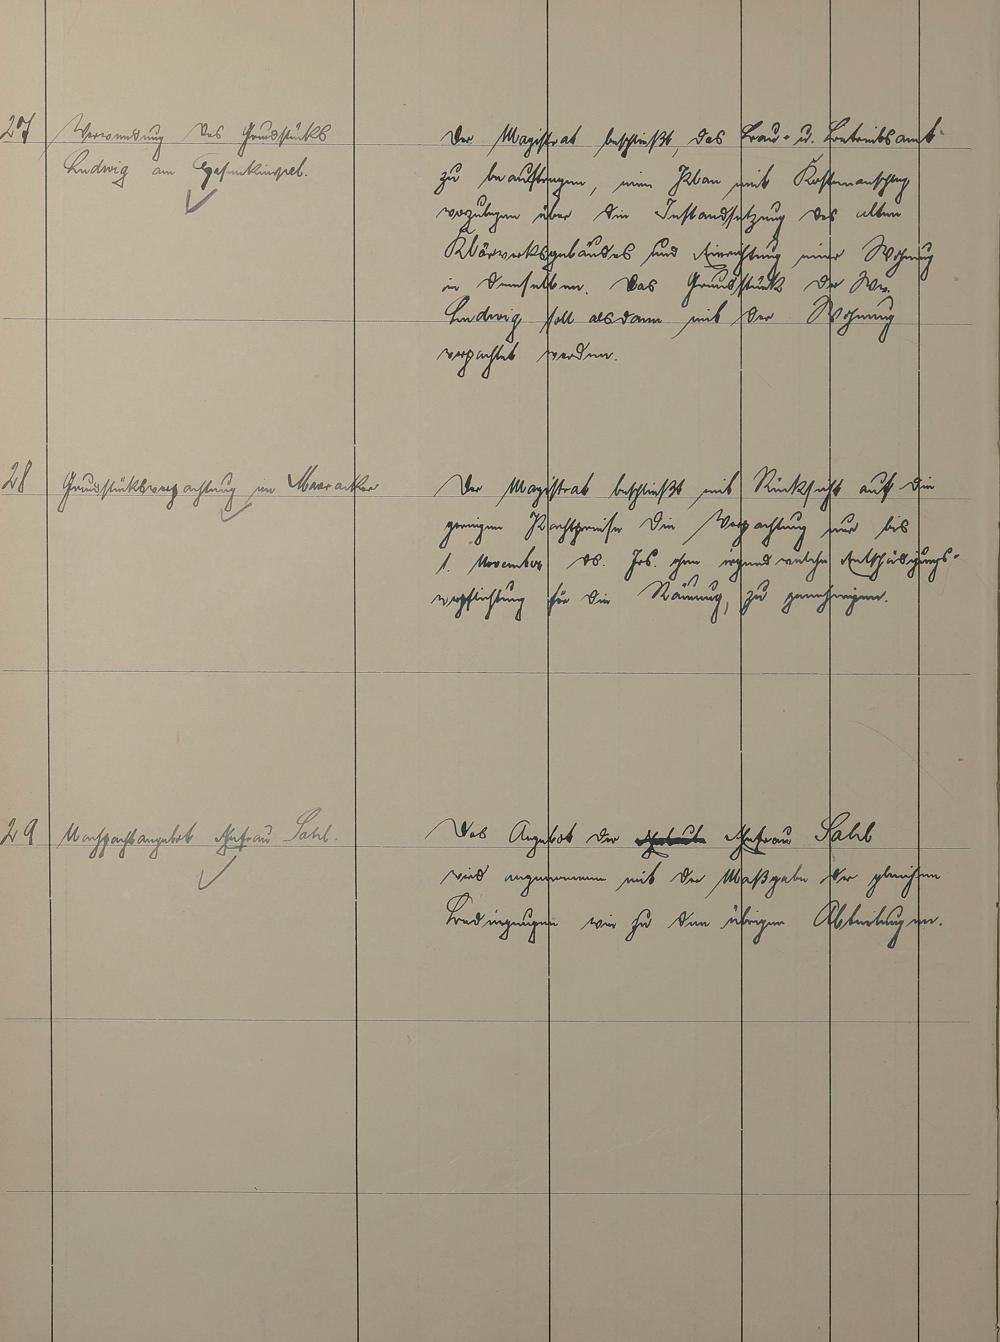 27
Verwendung des Grundstücks
Ludwig am
Der Magistrat beschließt, das Bau- u. Betriebsamt
zu beauftragen, einen Plan mit Kostenanschlag
vorzulegen über die Instandsetzung des alten
Klärwerksgebäudes und Einrichtung einer Wohnung
in demselben. Das Grundstück der Ww.
Ludwig soll alsdann mit der Wohnung
verpachtet werden.
28
Grundstücksverpachtung im
Der Magistrat beschließt mit Rücksicht auf die
geringen Pachtpreise die Verpachtung nur bis
1. November ds. Jrs. ohne irgendwelche Entschädigungs-
verpflichtung für die Räumung, zu genehmigen.
29
Nachpachtangebot Ehefrau Sahl.
Das Angebot der Ehefrau Sahl
wird angenommen mit der Maßgabe der gleichen
Bedingungen wie zu den übrigen Abteilungen.